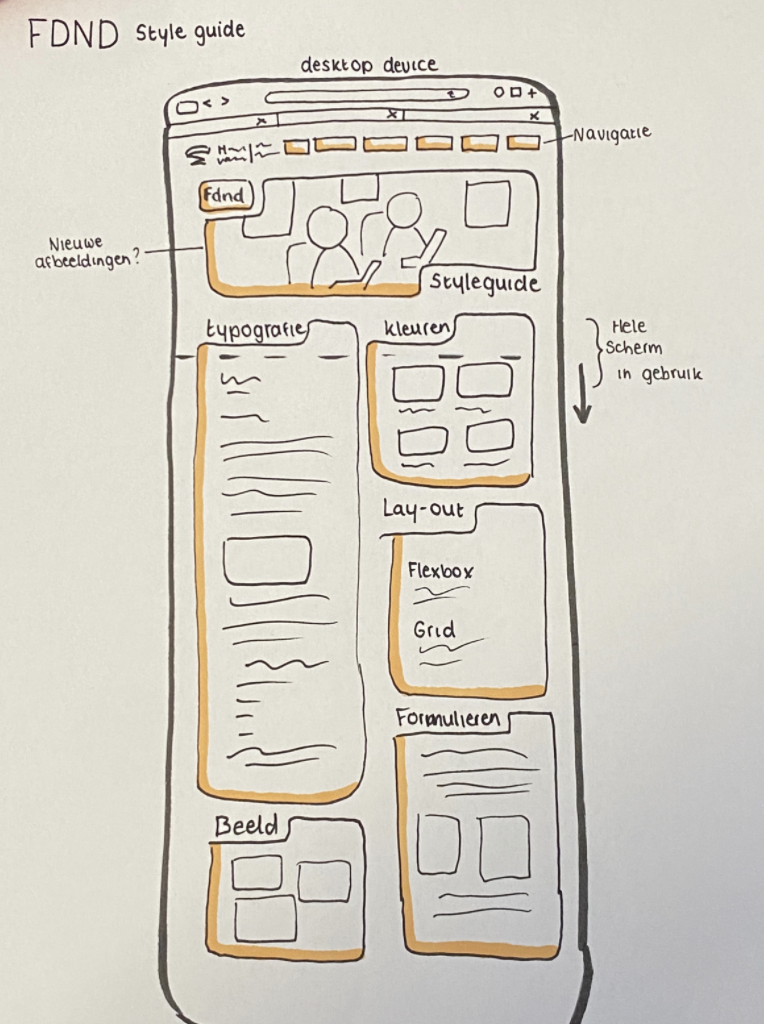 FDND Style guide
desktop device
Navigatie
Fdnd
Nieuwe
afbeeldingen?
Styleguide
typografie
kleuren
Hele
Scherm
in gebruik
Lay-out
Flexbox
Grid
Formulieren
Beeld